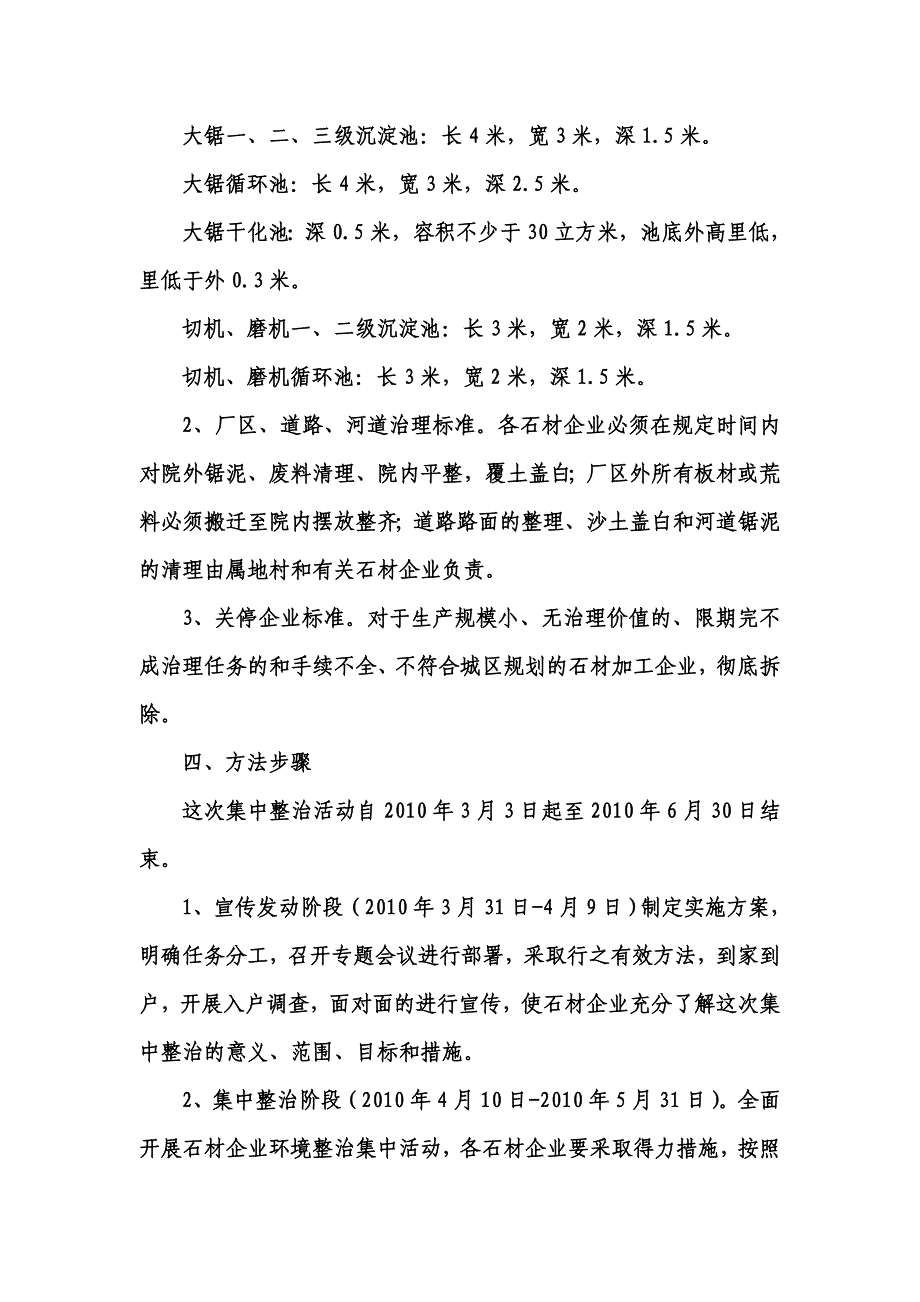 大锯一、二、三级沉淀池：长4米，宽3米，深1.5米。
大锯循环池：长4米，宽3米，深2.5米。
大锯干化池：深0.5米，容积不少于30立方米，池底外高里低，
里低于外0.3米。
切机、磨机一、二级沉淀池：长3米，宽2米，深1.5米。
切机、磨机循环池：长3米，宽2米，深1.5米。
2、厂区、道路、河道治理标准。各石材企业必须在规定时间内
对院外锯泥、废料清理、院内平整，覆土盖白；厂区外所有板材或荒
料必须搬迁至院内摆放整齐；道路路面的整理、沙土盖白和河道锯泥
的清理由属地村和有关石材企业负责。
3、关停企业标准。对于生产规模小、无治理价值的、限期完不
成治理任务的和手续不全、不符合城区规划的石材加工企业，彻底拆
除。
四、方法步骤
这次集中整治活动自2010年3月3日起至2010年6月30日结
束。
1、宣传发动阶段（2010年3月31日-4月9日）制定实施方案，
明确任务分工，召开专题会议进行部署，采取行之有效方法，到家到
户，开展入户调查，面对面的进行宣传，使石材企业充分了解这次集
中整治的意义、范围、目标和措施。
2、集中整治阶段（2010年4月10日-2010年5月31日）。全面
开展石材企业环境整治集中活动，各石材企业要采取得力措施，按照